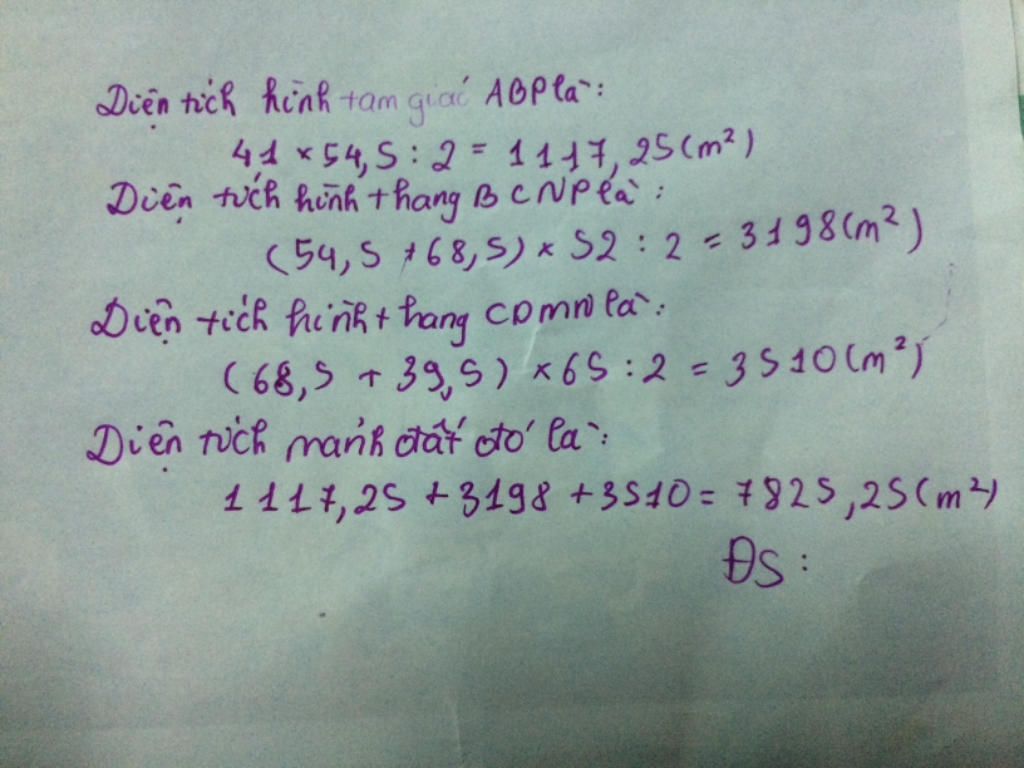 Diện tích hình tam giác ABP là:
41 × 54,5 : 2 = 1117,25 (m²)
Diện tích hình thang BCNP là:
(54,5 + 68,5) × 52 : 2 = 3198 (m²)
Diện tích hình thang CDMN là:
(68,5 + 39,5) × 65 : 2 = 3510 (m²)
Diện tích mảnh đất đó là:
1117,25 + 3198 + 3510 = 7825,25 (m²)
ĐS :